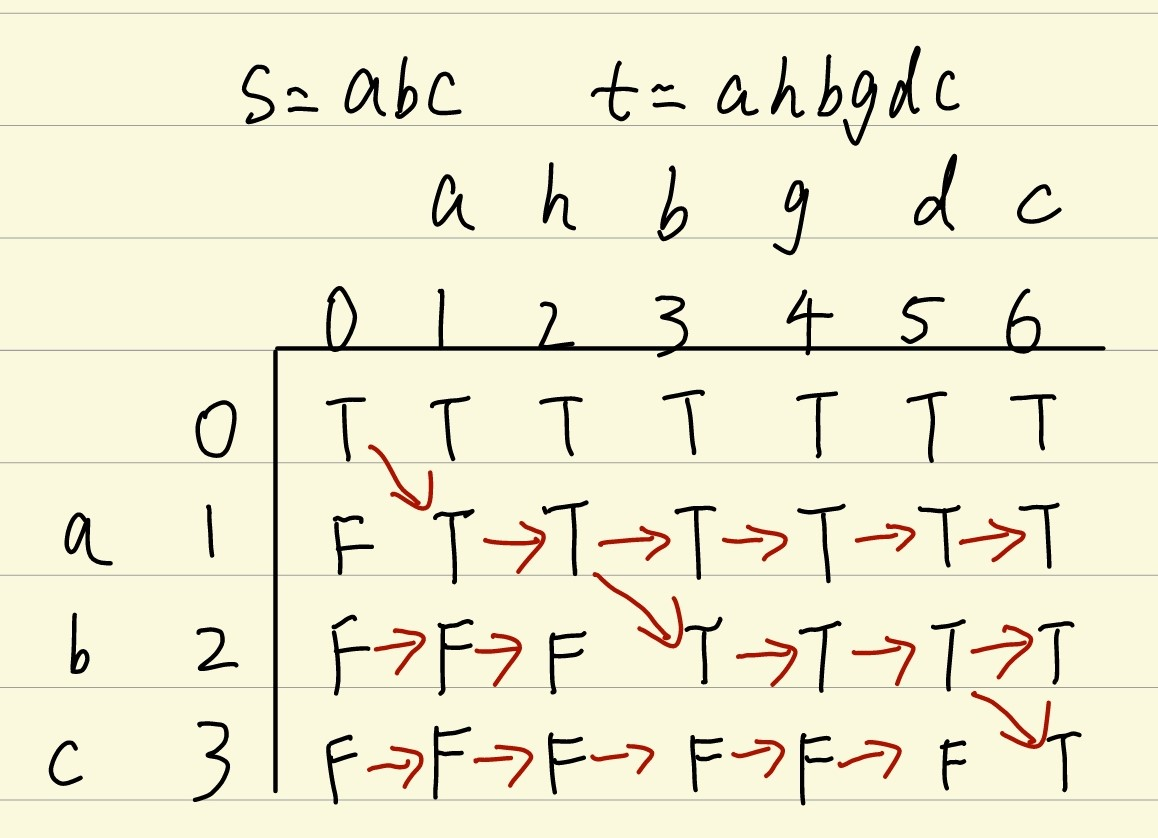 s = abc t = ahbgdc
a h b g d c
0 1 2 3 4 5 6
0 T T T T T T T
a 1 F T → T → T → T → T → T
b 2 F → F → F T → T → T → T
c 3 F → F → F → F → F → F T